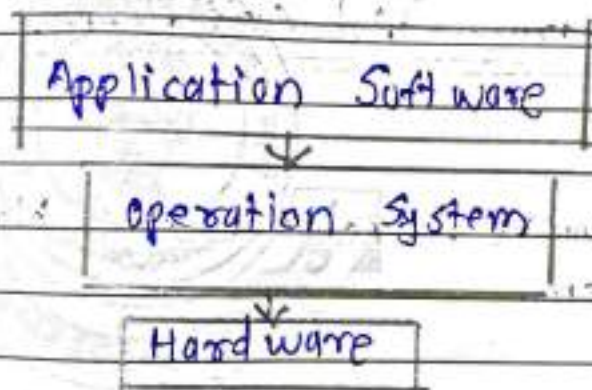 Application Software
operation System
Hardware